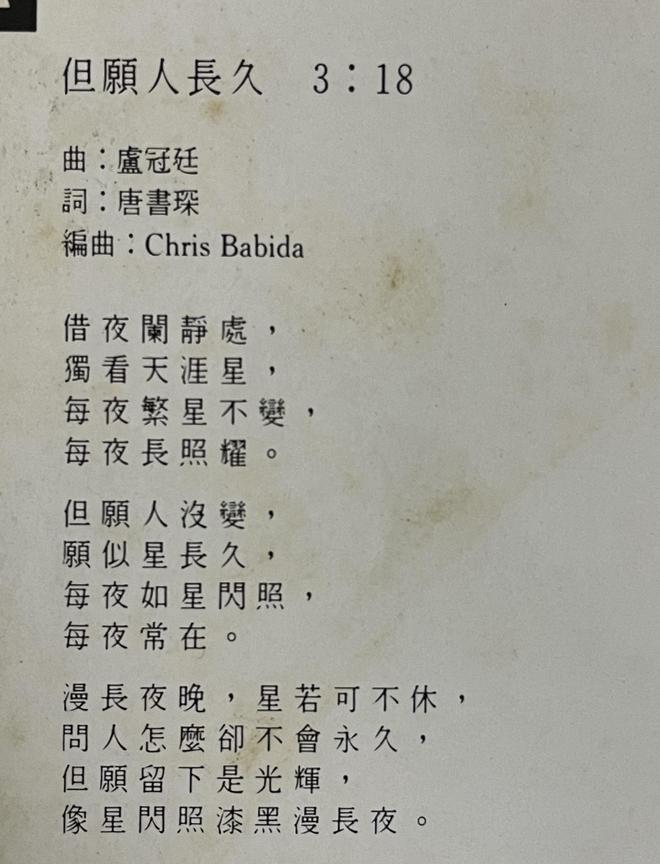 但願人長久　3：18
曲：盧冠廷
詞：唐書琛
編曲：Chris Babida
借夜闌靜處，
獨看天涯星，
每夜繁星不變，
每夜長照耀。
但願人沒變，
願似星長久，
每夜如星閃照，
每夜常在。
漫長夜晚，星若可不休，
問人怎麼卻不會永久，
但願留下是光輝，
像星閃照漆黑漫長夜。